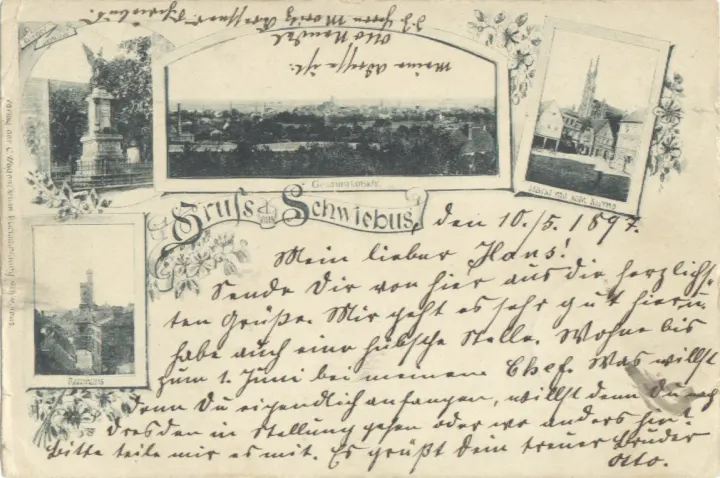 Meine Adresse ist:
Otto
Gesammtansicht.
Markt mit kath. Kirche
Gruss aus Schwiebus,
den 10./5. 1897.
Mein lieber Hans!
Sende Dir von hier aus die herzlichs-
ten Grüße. Mir geht es sehr gut hier u.
habe auch eine hübsche Stelle. Wohne bis
zum 1. Juni bei meinem Chef. Was willst
denn Du eigendlich anfangen, willst denn Du nach
Dresden in Stellung gehen oder wo anders hin?
Bitte teile mir es mit. Es grüßt Dein treuer Bruder
Otto.